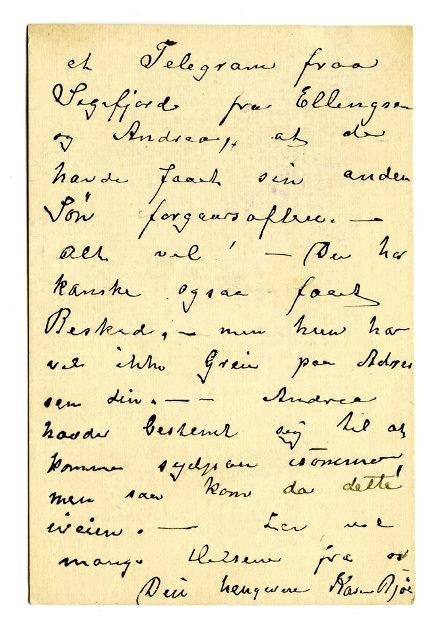 et Telegram fraa
Segefjord fra Ellengsen
og Andrea, at de
havde faaet sin anden
Søn forgaarsaften. —
Alt vel! — Du har
kanske ogsaa faaet
Besked, — men hun har
vel ikke Greie paa Adres
sen din. — — Andrea
havde bestemt sig til at
komme sydpaa isommer
men saa kom da dette
iveien. — Lev vel
mange Helsener fra os
Din hengivne